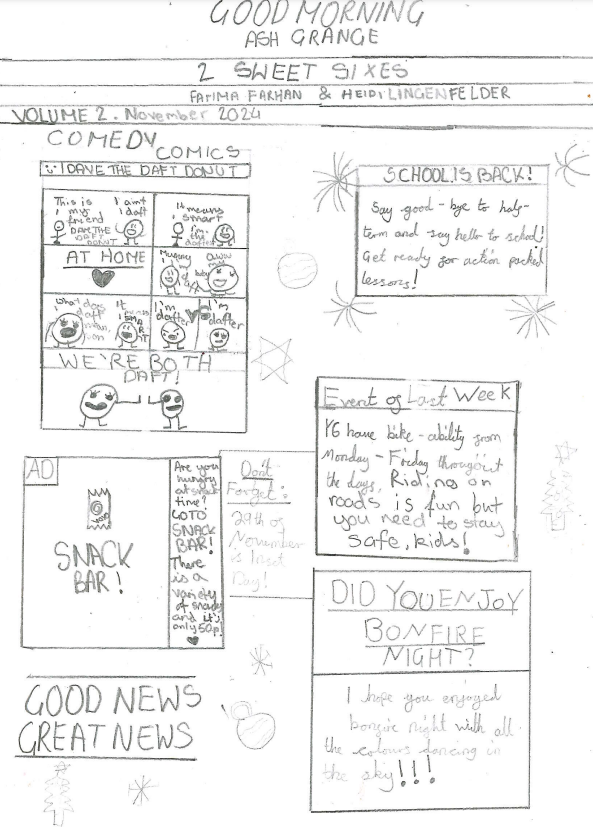 GOOD MORNING
ASH GRANGE
2 SWEET SIXES
FATIMA FARHAN & HEIDI LINGENFELDER
VOLUME 2. November 2024
COMEDY
COMICS
DAVE THE DAFT DONUT
This is
my
friend
DAVE THE
DAFT
DONUT
I aint
daft
It means
smart
I'm
the
daftest
AT HOME
Mummy
Aww
my
baby
What does
daft
mean,
It
means
SMART
I'm
dafter
I'm
dafter
WE'RE BOTH
DAFT!
SCHOOL IS BACK!
Say good-bye to half-
term and say hello to school!
Get ready for action packed
lessons!
Event of Last Week
Y6 have bike-ability from
Monday - Friday throughout
the days. Riding on
roads is fun but
you need to stay
safe, kids!
AD
SNACK
BAR!
Are you
hungry
at snack
time?
GOTO
SNACK
BAR!
There
is a
variety
of snacks
and it's
only 50p!
Don't
Forget:
29th of
November
is Inset
Day!
DID YOU ENJOY
BONFIRE
NIGHT?
I hope you enjoyed
bonfire night with all
the colours dancing in
the sky!!!
GOOD NEWS
GREAT NEWS